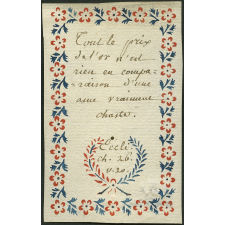 Tout le prix
de l'or n'est
rien en compa-
raison d'une
ame vraiment
chaste.
Eccle.
ch. 26.
v. 20.